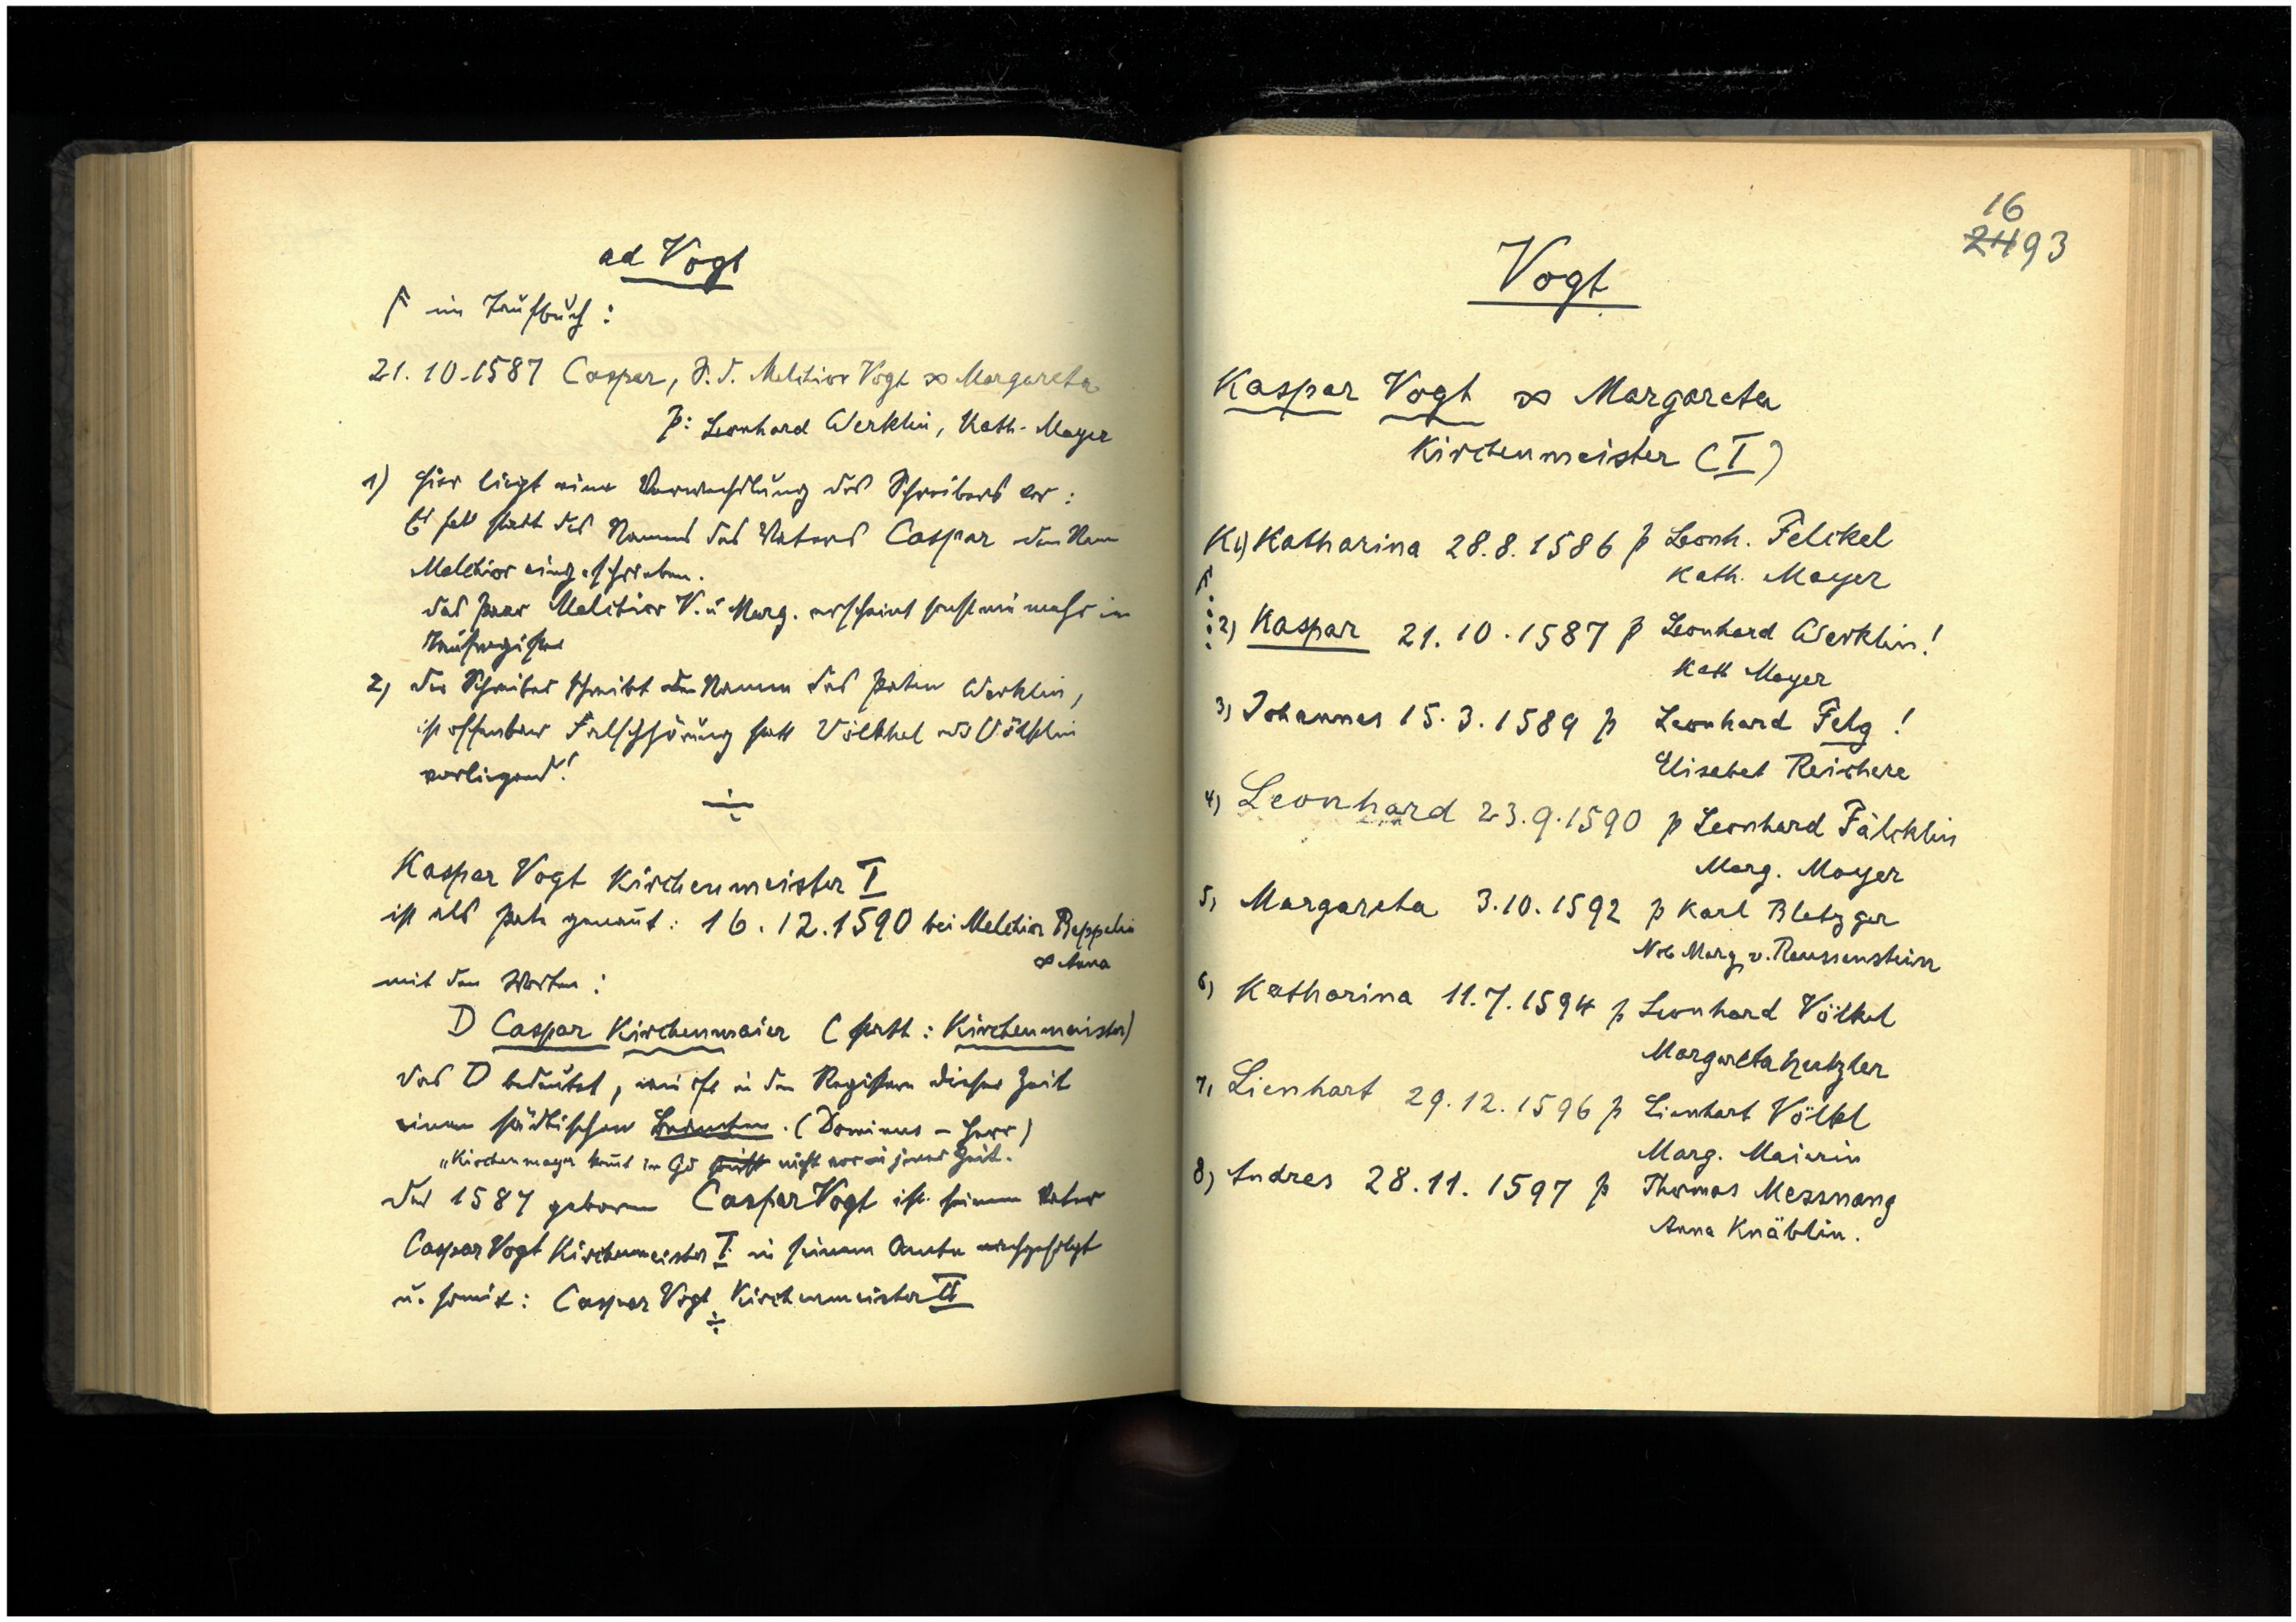 ad Vogt
im Taufbuch:
21.10.1587 Caspar, S. d. Melchior Vogt ∞ Margareta
p: Leonhard Werklin, Kath. Mayer
1) hier liegt eine Verwechslung des Schreibers vor:
Es statt des Namens des Vaters Caspar den Namen
Melchior eingeschrieben.
das Paar Melchior V. u Marg. erscheint sonst nie mehr im
Taufregister
2) der Schreiber schreibt den Namen des Paten Werklin,
ist offenbar Falschhörung statt Völkhel oder Völklin
vorliegend!
Kaspar Vogt Kirchenmeister I
ist als Pate genannt: 16.12.1590 bei Melchior Beppelin
∞ Anna
mit den Worten:
D Caspar Kirchenmaier (statt: Kirchenmeister)
das D bedeutet, wie oft in den Registern dieser Zeit
einen städtischen Beamten. (Dominus – Herr)
"Kirchenmayer kommt in Gd nicht vor in jener Zeit.
der 1587 geborene Caspar Vogt ist seinem Vater
Caspar Vogt Kirchenmeister I in seinem Amte nachgefolgt
u. somit: Caspar Vogt Kirchenmeister II
16
24 93
Vogt
Kaspar Vogt ∞ Margareta
Kirchenmeister (I)
K 1) Katharina 28.8.1586 p Leonh. Felckel
Kath. Mayer
2) Kaspar 21.10.1587 p Leonhard Werklin!
Kath Mayer
3) Johannes 15.3.1589 p Leonhard Felg!
Elisabet Reichere
4) Leonhard 23.9.1590 p Leonhard Fälcklin
Marg. Mayer
5) Margareta 3.10.1592 p Karl Bletzger
Nob Marg. v. Reussenstein
6) Katharina 11.7.1594 p Leonhard Völkel
Margareta
7) Lienhart 29.12.1596 p Lienhart Völkl
Marg. Maierin
8) Andres 28.11.1597 p Thomas Messnang
Anna Knäblin.